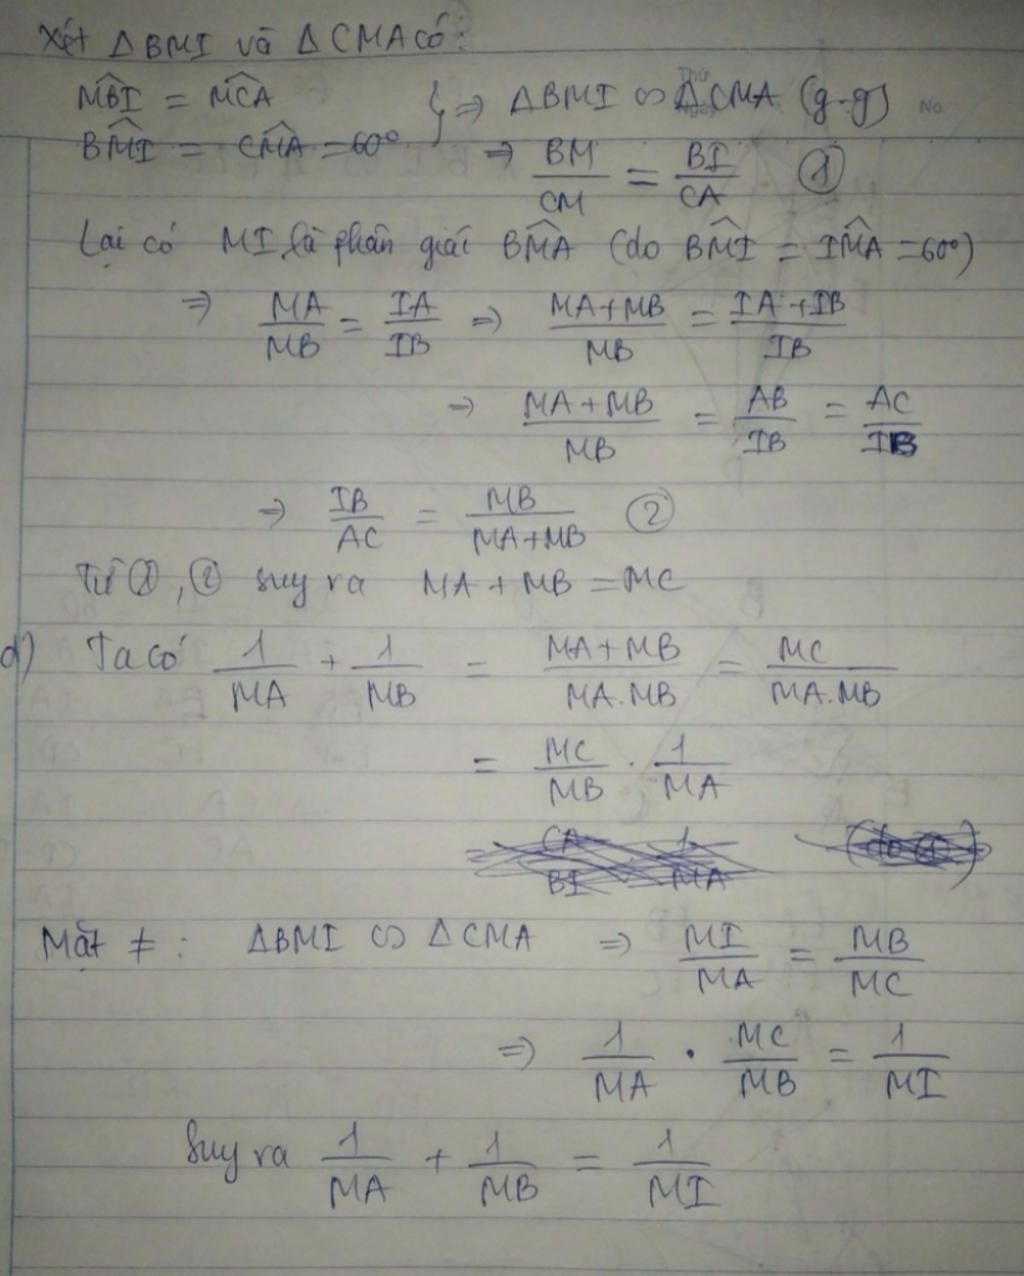 Xét ΔBMI và ΔCMA có:
Thứ
Ngày
No.
MBI = MCA } => ΔBMI ∽ ΔCMA (g-g)
BMI = CMA = 60°
=> BM/CM = BI/CA ①
Lại có MI là phân giác BMA (do BMI = IMA = 60°)
=> MA/MB = IA/IB => (MA+MB)/MB = (IA+IB)/IB
=> (MA+MB)/MB = AB/IB = AC/IB
=> IB/AC = MB/(MA+MB) ②
Từ ①, ② suy ra MA + MB = MC
d) Ta có 1/MA + 1/MB = (MA+MB)/(MA.MB) = MC/(MA.MB)
= MC/MB . 1/MA
= CA/BI 1/MA (do ①)
Mặt ≠ : ΔBMI ∽ ΔCMA => MI/MA = MB/MC
=> 1/MA . MC/MB = 1/MI
Suy ra 1/MA + 1/MB = 1/MI